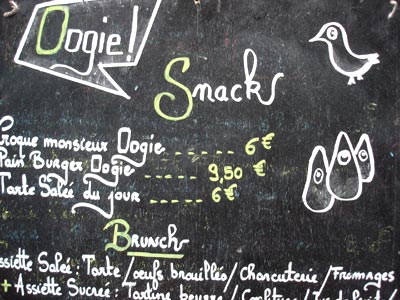 Oogie!
Snack
Croque monsieur Oogie ...... 6€
Pain Burger Oogie ..... 9,50 €
Tarte Salée du jour ..... 6€
Brunch
Assiette Salée : Tarte / œufs brouillés / Charcuterie / Fromages
+ Assiette Sucrée : Tartine beurre / Confiture /